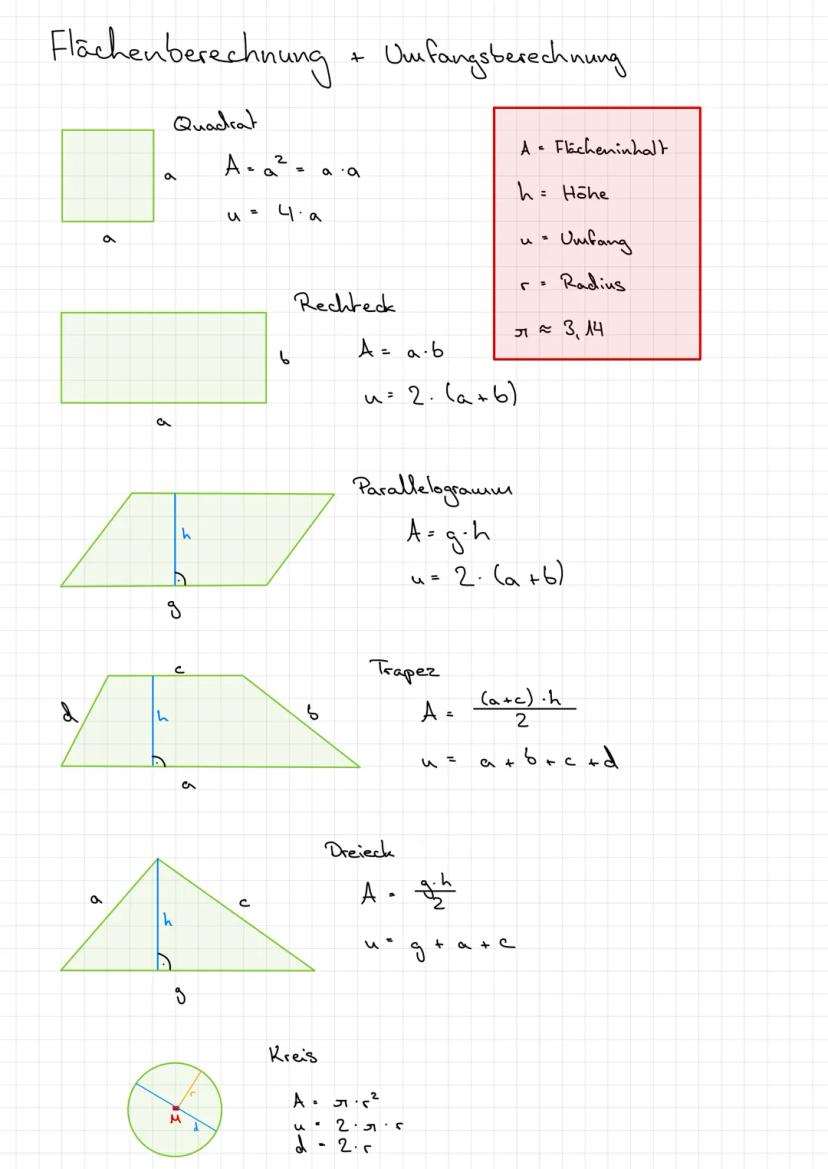 Flächenberechnung + Umfangsberechnung
Quadrat
a
a
A = a² = a · a
u = 4 · a
A = Flächeninhalt
h = Höhe
u = Umfang
r = Radius
π ≈ 3,14
Rechteck
b
a
A = a · b
u = 2 · (a + b)
Parallelogramm
h
g
A = g · h
u = 2 · (a + b)
Trapez
c
d
h
b
a
A = (a+c) · h / 2
u = a + b + c + d
Dreieck
a
h
c
g
A = g · h / 2
u = g + a + c
Kreis
r
M
d
A = π · r²
u = 2 · π · r
d = 2 · r